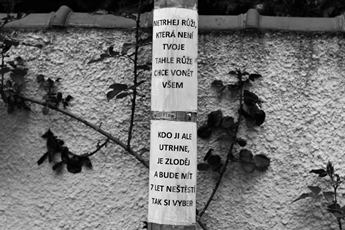 NETRHEJ RŮŽI,
KTERÁ NENÍ
TVOJE
TAHLE RŮŽE
CHCE VONĚT
VŠEM
KDO JI ALE
UTRHNE,
JE ZLODĚJ
A BUDE MÍT
7 LET NEŠTĚSTÍ
TAK SI VYBER